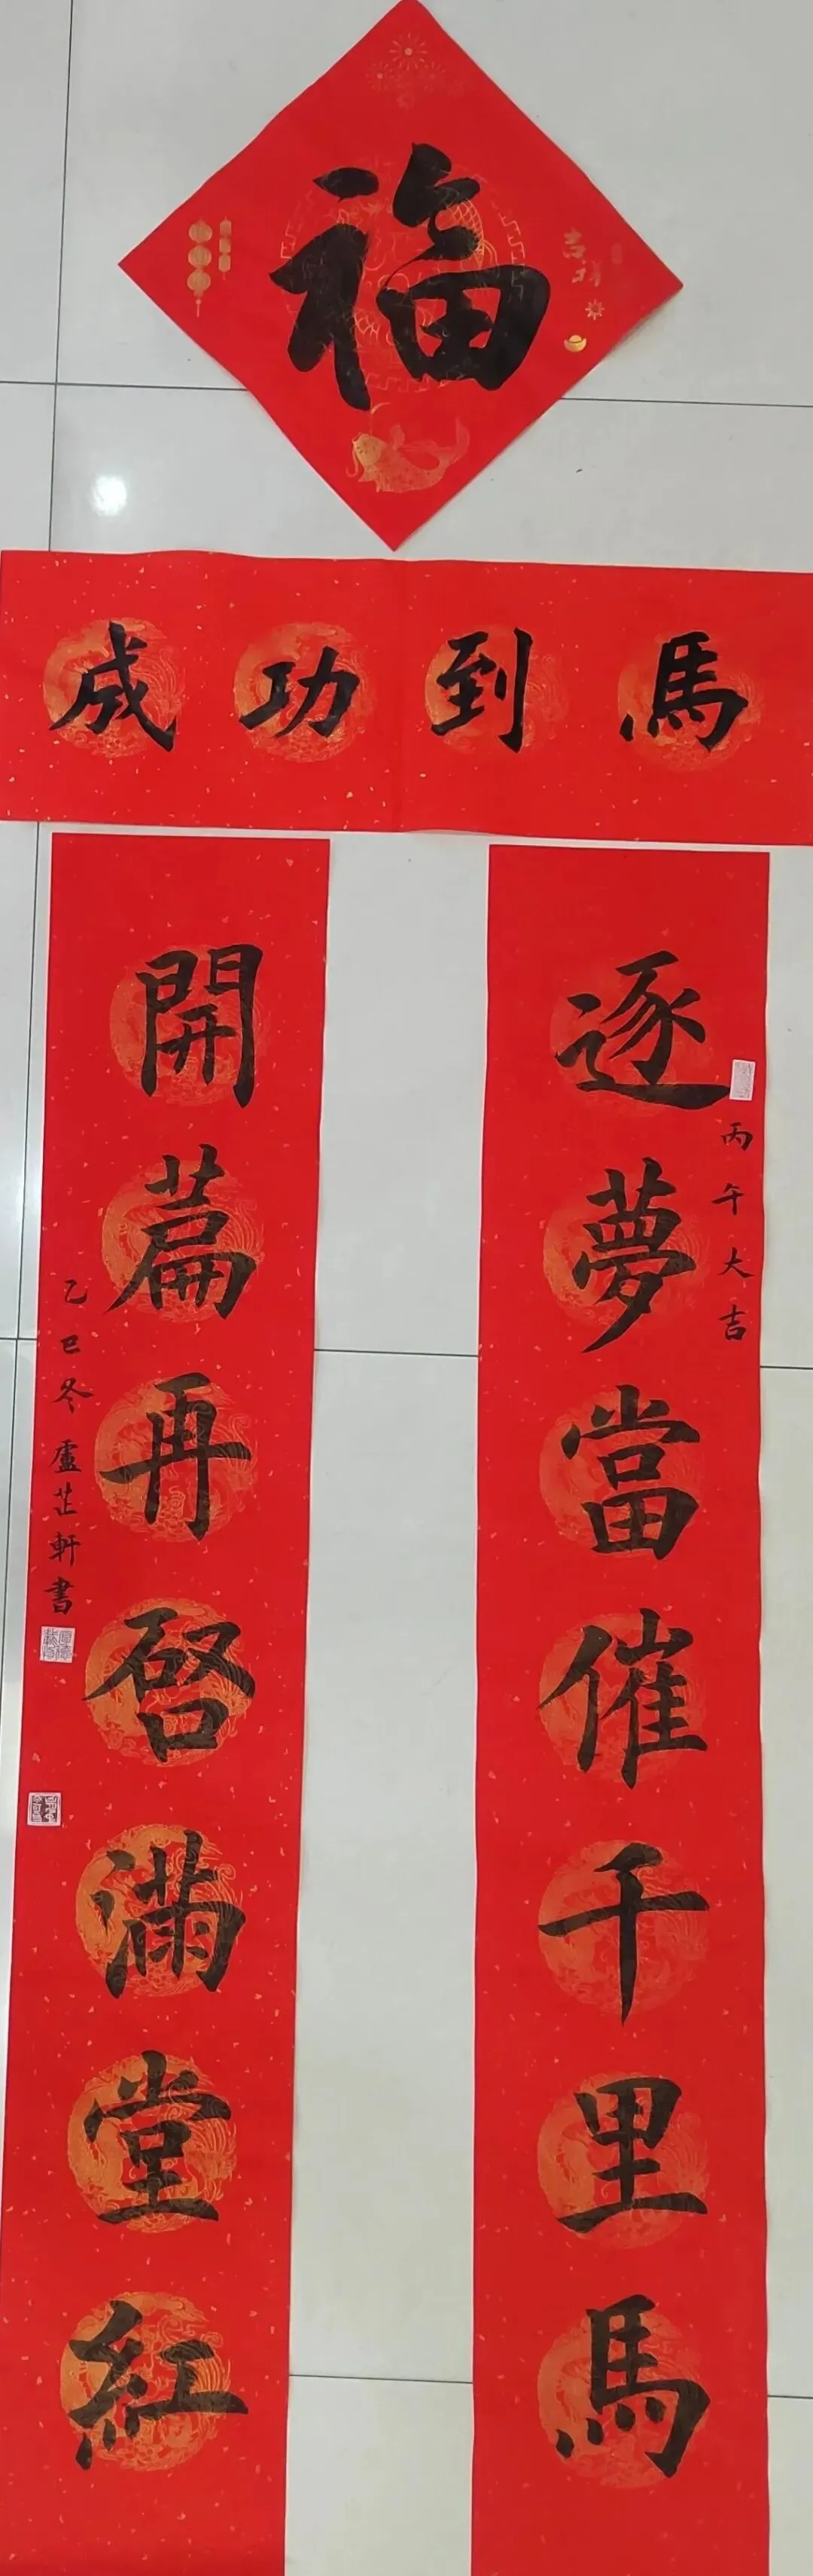 福
吉祥
馬到功成
逐夢當催千里馬
丙午大吉
開篇再啓滿堂紅
乙巳冬盧芷軒書